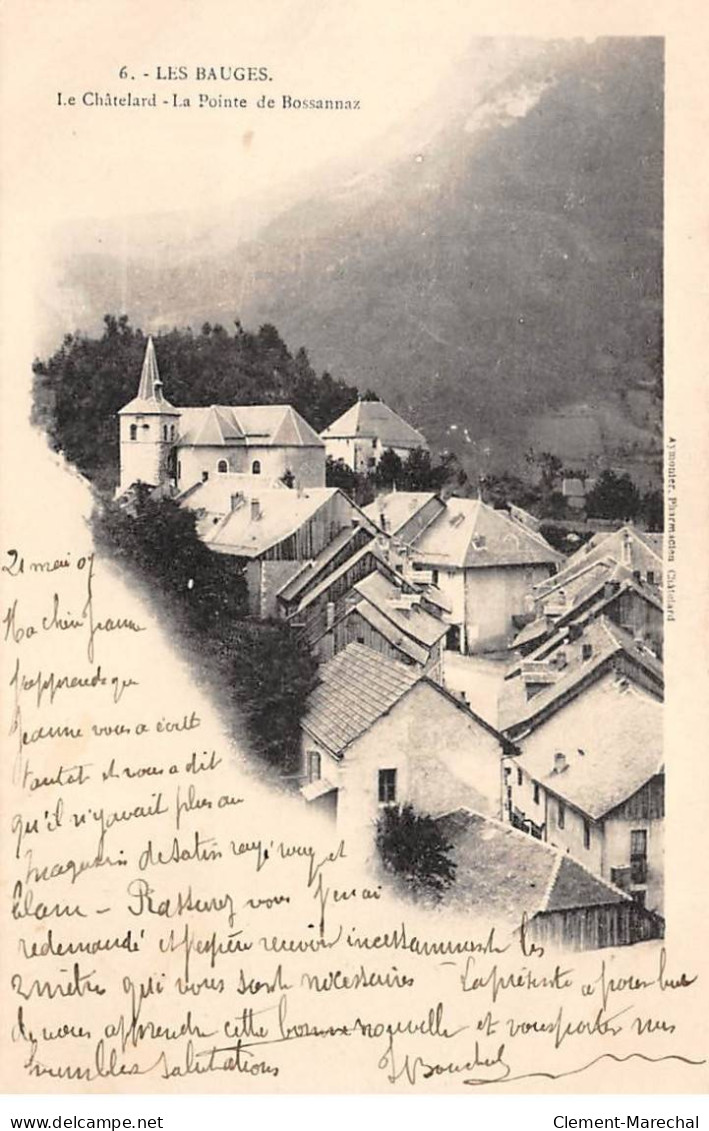 6. - LES BAUGES.
Le Châtelard - La Pointe de Bossannaz
Aymonier, Pharmacien Châtelard
21 mai 07
Ma chère Jeanne
J'apprends que
Jeanne vous a écrit
tantôt et vous a dit
qu'il n'y avait plus au
magasin de satin rayé rouge et
blanc - Rassurez vous j'en ai
redemandé et j'espère recevoir incessamment les
2 mètres qui vous sont nécessaires - La présente a pour but
de vous apprendre cette bonne nouvelle et vous porter mes
humbles salutations
Bouchet
Clement-Marechal